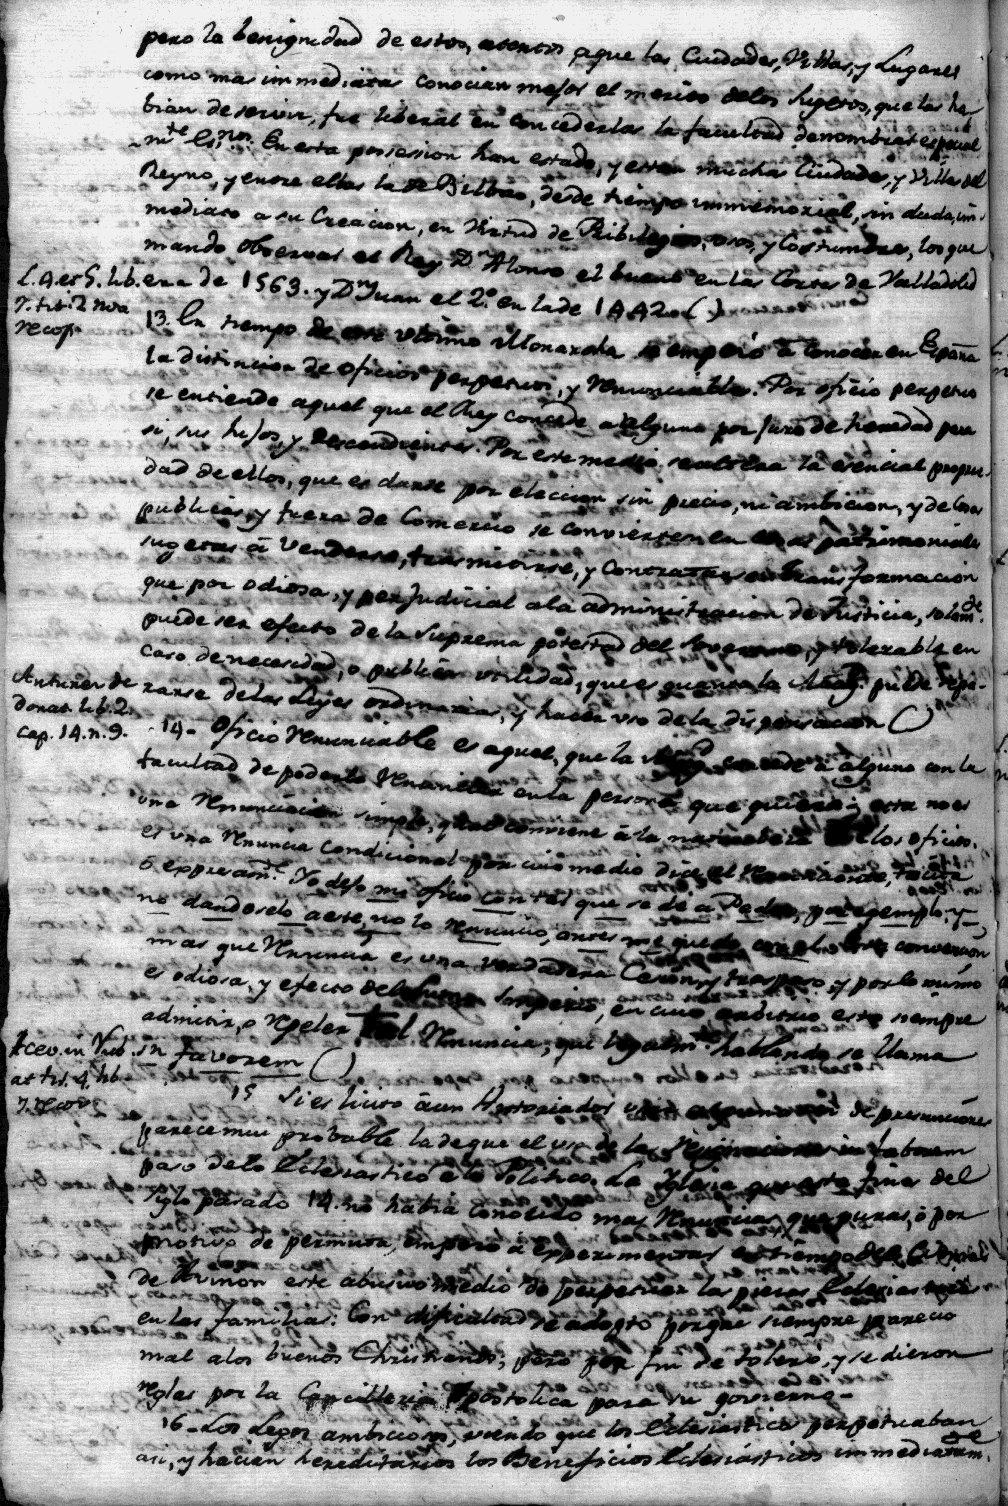 pero la benignidad de estos, atentos aque las Ciudades, Villas, y Lugares
como mas immediatas conocian mejor el merito delos Sugetos, que las ha
bian de servir, fue liberal en concederlas la facultad denombrar especial
mte Esnos. En esta possession han estado, y estan muchas Ciudades, y Villas del
Reyno, y entre ellas la de Bilbao, desde tiempo immemorial, sin duda, im-
mediato a su Creacion, en virtud de Pribilegios, usos, y Costumbres, los que
mando observar el Rey Dn Alonso el bueno en las Cortes de Valladolid
L. 4. et 5. lib. era de 1563. y Dn Juan el 2.º en la de 1442. ( )
7. tit. 2 nova
recop.
13. En tiempo de este ultimo Monarcha se empezó à conocer en España
la distincion de oficios perpetuos, y renunciables. Por oficio perpetuo
se entiende aquel que el Rey concede a alguno por juro de heredad para
si, sus hijos, y descendientes. Por este medio se altera la esencial propie-
dad de ellos, que es darse por eleccion sin precio, ni ambicion, y de cosas
publicas, y fuera de Comercio se convierten en cosas patrimoniales
sugetas à venderse, trasmitirse, y Contratarse transformacion
que por odiosa, y perjudicial ala administracion de Justicia, solamte
puede ser efecto de la Suprema potestad del Soverano, y tolerable en
caso de necesidad, o publica utilidad, que es quando la Magd. puede sepa-
Antunez de rarse de las Leyes ordinarias, y hacer uso de la dispensacion ( )
donat. lib. 2.
cap. 14. n. 9.
14. Oficio renunciable es aquel, que la Magd concede à alguno con la
facultad de poderlo renunciar en la persona que quiera; esta no es
una renunciacion simple, qual conviene à la naturaleza de los oficios.
es una renuncia condicional por cuio medio dice el renunciante, tacita
ô expresamte. Yo dejo mi oficio con tal que se dé a Pedro, por egemplo: y
no dandoselo a este, no lo renuncio, antes me quedo con el. Esta convencion
mas que renuncia es una verdadera Cesion, y traspaso, y por lo mismo
es odiosa, y efecto del Imperio, en cuio arbitrio esta siempre
admitir, o repeler tal renuncia, que legalmte hablando se llama
Acev. in rub. in favorem ( )
at tit. 4. lib.
7. recop.
15 Si es licito à un Historiador usar de presunciones
parece mui probable la de que el uso de las resignaciones in faborem
paso delo Eclesiastico a lo Politico. La Iglesia que asta fines del
siglo pasado 14. no habia conocido mas renuncias, que puras, ò por
motivo de permuta, empezo à experimentar, en tiempo del
de Aviñon este abusivo medio de perpetuar las piezas Eclesiasticas
en las familias. Con dificultad se adopto porque siempre parecio
mal a los buenos Christianos; pero por fin se tolero, y se dieron
reglas por la Cancilleria Apostolica para su govierno.
16. Los Legos ambiciosos, viendo que los Eclesiasticos perpetuaban
asi, y hacian hereditarios los Beneficios Eclesiasticos immediatamte.